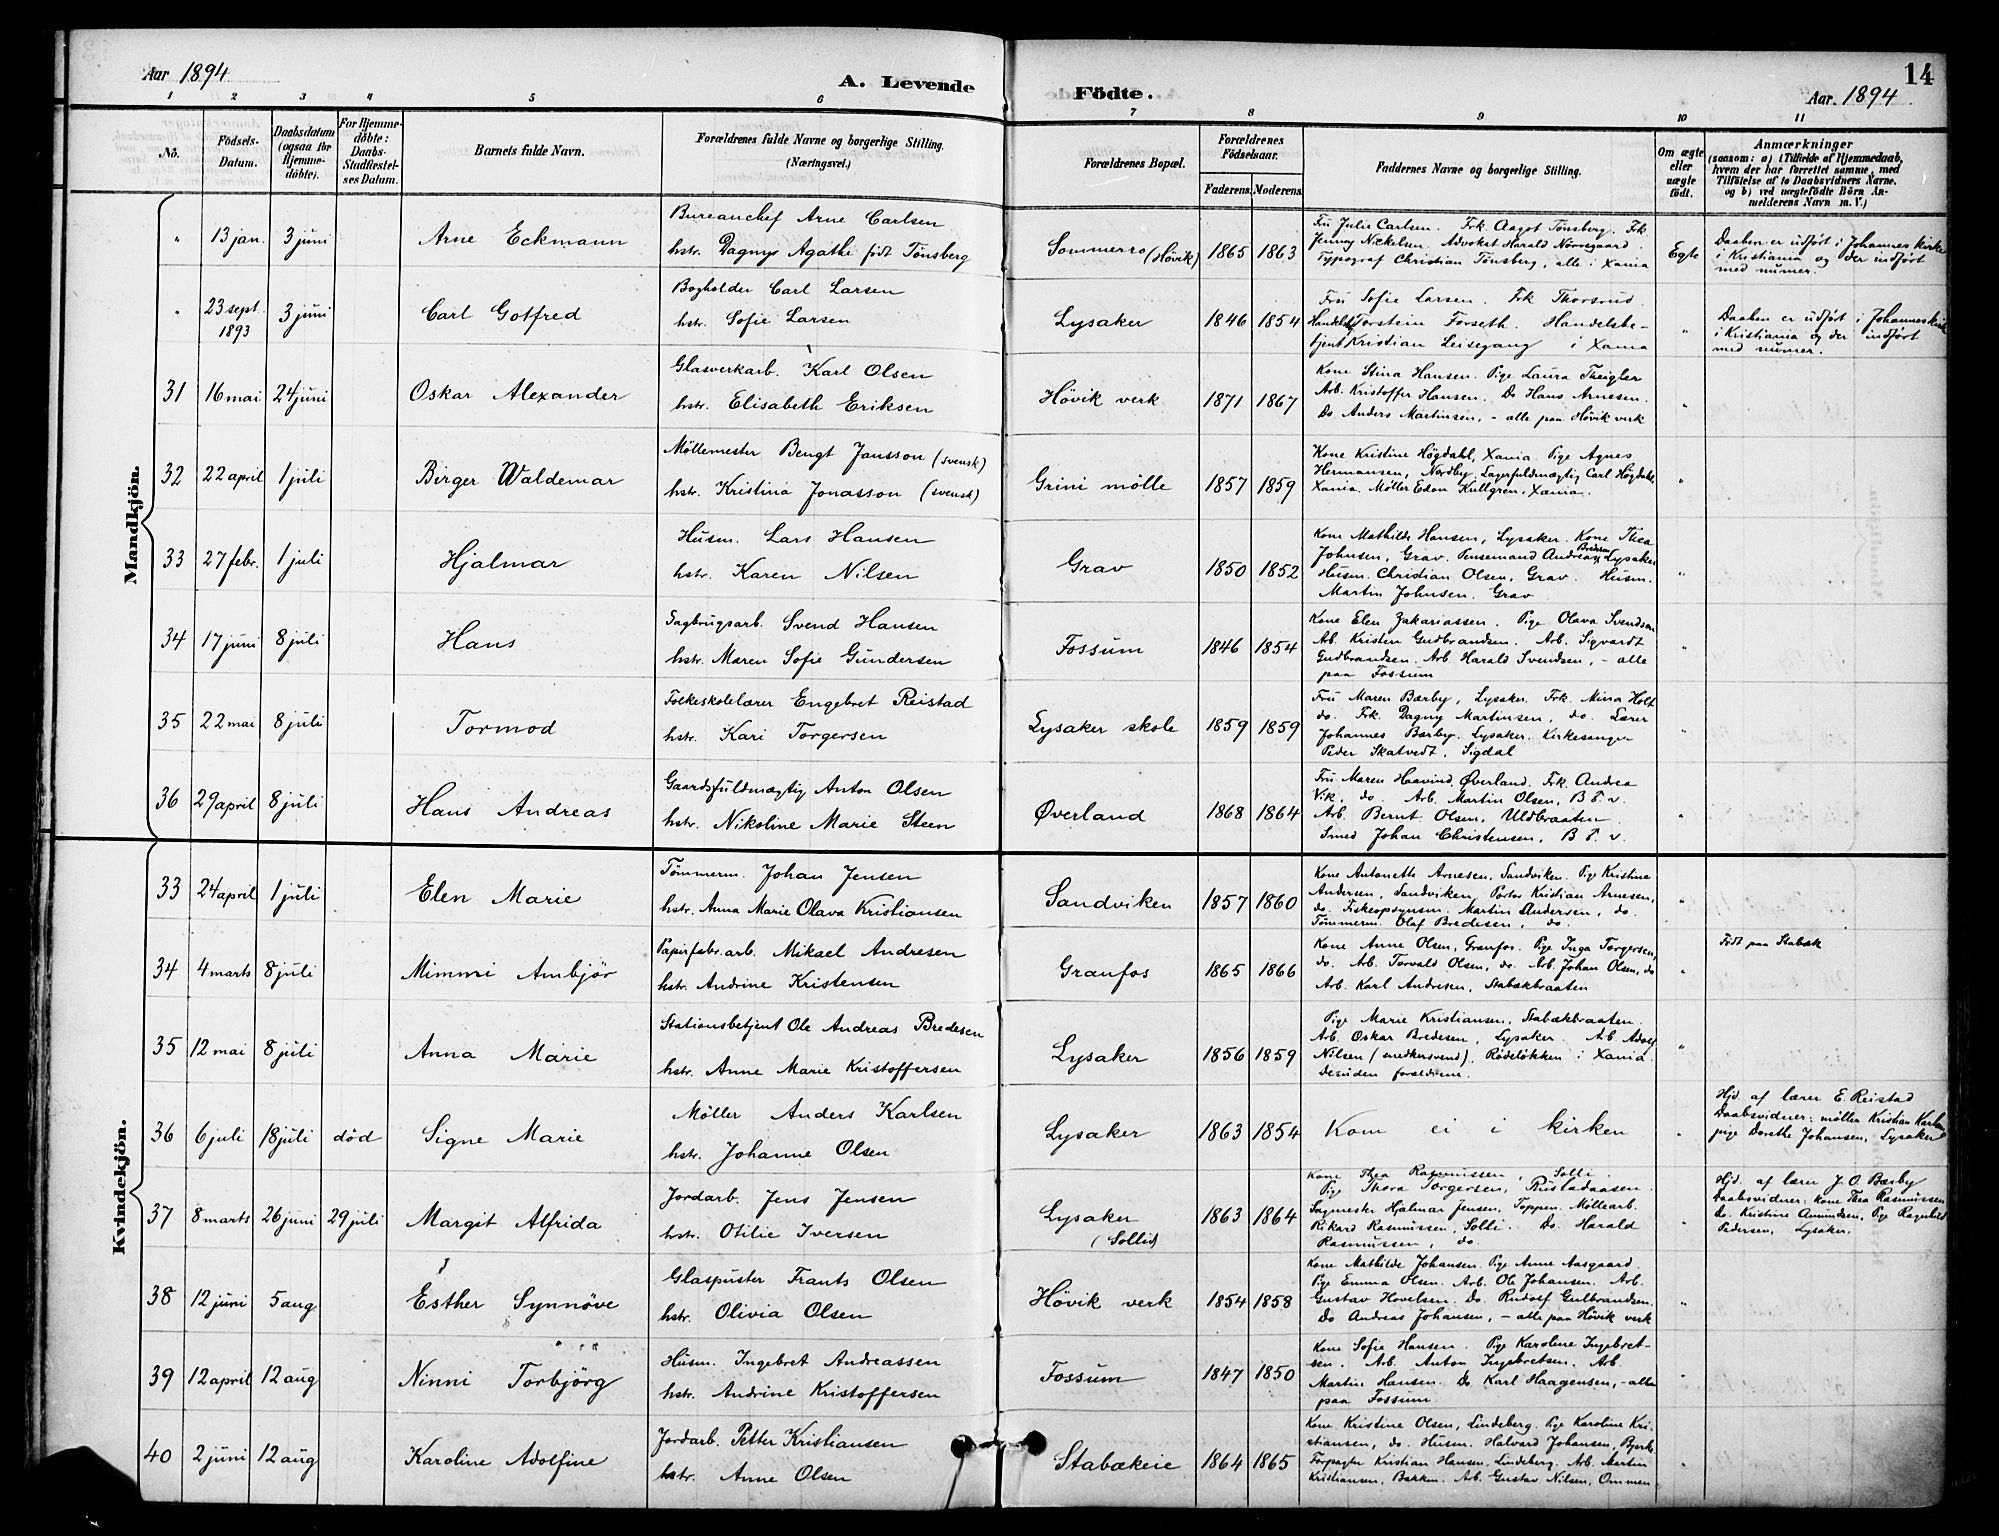 Aar 1894
A. Levende
Födte.
Aar 1894
14
1 2 3 4 5 6 7 8 9 10 11
Nö.
Födsels-Datum.
Daabsdatum (ogsaa for Hjemme-döbte).
For Hjemme-döbte: Daabs-Stadfæstel-ses Datum.
Barnets fulde Navn.
Forældrenes fulde Navne og borgerlige Stilling. (Næringsvei.)
Forældrenes Bopæl.
Forældrenes Födselsaar.
Faderens. Moderens.
Faddernes Navne og borgerlige Stilling.
Om ægte eller uægte födt.
Anmærkninger
(saasom: a) i Tilfælde af Hjemmedaab,
hvem der har forrettet samme, med
Tilföielse af to Daabsvidners Navne.
og b) ved uægtefödte Börn An-
melderens Navn m. V.)
Mandkjön.
" 13 jan. 3 juni Arne Eckmann
Bureauchef Arne Carlsen
hstr. Dagny Agathe født Tönsberg
Sommerro (Høvik) 1865 1863
Fru Julie Carlsen. Frk Aagot Tönsberg. Frk.
Jenny Nickelsen. Advokat Harald Nørregaard.
Typograf Christian Tönsberg, alle i Xania
Egte
Daaben er udført i Johannes kirke
i Kristiania og der indført
med numer.
" 23 sept. 1893 3 juni Carl Gotfred
Bogholder Carl Larsen
hstr. Sofie Larsen
Lysaker 1846 1854
Fru Sofie Larsen. Frk Thorsrud.
Torstein Forseth. Handelsbe-
tjent Kristian Leisegang i Xania
"
Daaben er udført i Johanneskirke
i Kristiania og der indført
med numer.
31 16 mai 24 juni Oskar Alexander
Glasverkarb. Karl Olsen
hstr. Elisabeth Eriksen
Høvik verk 1871 1867
Kone Stina Hansen. Pige Laura Theigler
Arb. Kristoffer Hansen. Do Hans Arnesen.
Do Anders Martinsen, - alle paa Høvik verk
"
32 22 april 1 juli Birger Waldemar
Møllemester Bengt Jansson (svensk)
hstr. Kristina Jonasson (svensk)
Grini mølle 1857 1859
Kone Kristine Högdahl, Xania. Pige Agnes
Hermansen, Nordby. Lagerfuldmægtig Carl Högdahl,
Xania. Møller Edon Kullgren, Xania.
"
33 27 febr. 1 juli Hjalmar
Husm. Lars Hansen
hstr. Karen Nilsen
Grav 1850 1852
Kone Mathilde Hansen, Lysaker. Kone Thea
Johnsen, Grav. Pensemand Andreas Bredesen Lysaker
Husm. Christian Olsen, Grav. Husm.
Martin Johnsen. Grav
"
34 17 juni 8 juli Hans
Sagbrugsarb. Svend Hansen
hstr. Maren Sofie Gundersen
Fossum 1846 1854
Kone Elen Zakariassen. Pige Olava Svendsen
Arb. Kristen Gudbrandsen. Arb. Sigvardt
Gudbrandsen. Arb Harald Svendsen, - alle
paa Fossum
"
35 22 mai 8 juli Tormod
Folkeskolelærer Engebret Reistad
hstr. Kari Torgersen
Lysaker skole 1859 1859
Fru Maren Bærby, Lysaker. Frk. Mina Holt
do. Frk. Dagny Martinsen, do. Lærer
Johannes Bærby. Lysaker. Kirkesanger
Peder Skatvedt, Sigdal
"
36 29 april 8 juli Hans Andreas
Gaardsfuldmægtig Anton Olsen
hstr. Nikoline Marie Steen
Øverland 1868 1864
Fru Maren Haavind, Øverland. Frk. Andrea
Vik, do Arb. Martin Olsen, B. F. v.
Arb. Bernt Olsen, Uldbraaten
Smed Johan Christensen, B. F. v.
"
Kvindekjön.
33 24 april 1 juli Elen Marie
Tømmerm. Johan Jensen
hstr. Anna Marie Olava Kristiansen
Sandviken 1857 1860
Kone Antonette Arnesen, Sandviken. Pige Kristine
Andersen, Sandviken Portør Kristian Arnesen,
do. Fiskeopsynsm. Martin Andersen, do.
Tömmerm. Olaf Bredesen, do.
"
34 4 marts 8 juli Mimmi Ambjør
Papirfabr.arb. Mikael Andresen
hstr. Andrine Kristensen
Granfos 1865 1866
Kone Anne Olsen, Granfos. Pige Inga Torgersen,
do. Arb. Torvald Olsen, do. Arb. Johan Olsen, do
Arb. Karl Andresen, Stabækbraaten
"
Født paa Stabæk
35 12 mai 8 juli Anna Marie
Stationsbetjent Ole Andreas Bredesen
hstr. Anne Marie Kristoffersen
Lysaker 1856 1859
Pige Marie Kristiansen, Stabækbraaten.
Arb. Oskar Bredesen, Lysaker. Arb Adolf
Nilsen (snedkersvend), Rødeløkken i Xania.
Desuden forældrene.
"
36 6 juli 18 juli død Signe Marie
Møller Anders Karlsen
hstr. Johanne Olsen
Lysaker 1863 1854
Kom ei i kirken
"
Hjd. af lærer E. Reistad
Daabsvidner: møller Kristian Karlsen
pige Dorethe Johansen, Lysaker
37 8 marts 26 juni 29 juli Margit Alfrida
Jordarb. Jens Jensen
hstr. Otilie Iversen
Lysaker (Sollid) 1863 1864
Kone Thea Rasmussen, Solli.
Pige Thora Torgersen, Rustadaasen.
Sagmester Hjalmar Jensen, Toppen. Møllearb.
Rikard Rasmussen, Solli. Do. Harald
Rasmussen, do.
"
Hjd. af lærer J. O. Bærby
Daabsvidner: kone Thea Rasmussen
Do. Kristine Amundsen, Pige Ragnhild
Pedersen, Lysaker.
38 12 juni 5 aug Esther Synnöve
Glaspuster Frants Olsen
hstr. Olivia Olsen
Høvik verk 1854 1858
Kone Mathilde Johansen. Pige Anne Aasgaard.
Pige Emma Olsen. Arb. Ole Johansen. Arb.
Gustav Hovelsen. Do. Rudolf Gulbrandsen.
Do Andreas Johansen, - alle paa Høvik verk
"
39 12 april 12 aug Ninni Torbjörg
Husm. Ingebret Andreassen
hstr. Andrine Kristoffersen
Fossum 1847 1850
Kone Sofie Hansen. Pige Karoline Ingebret-
sen. Arb. Anton Ingebretsen. Arb.
Martin Hansen. Do Karl Haagensen, - alle
paa Fossum
"
40 2 juni 12 aug Karoline Adolfine
Jordarb. Petter Kristiansen
hstr. Anne Olsen
Stabækeie 1864 1865
Kone Kristine Olsen, Lindeberg. Pige Karoline Kri-
stiansen, do. Husm. Halvard Johansen, Bjerke.
Forpagter Kristian Hansen, Lindeberg. Arb. Martin
Kristiansen, Bakken. Arb. Gustav Nilsen, Ommen
"